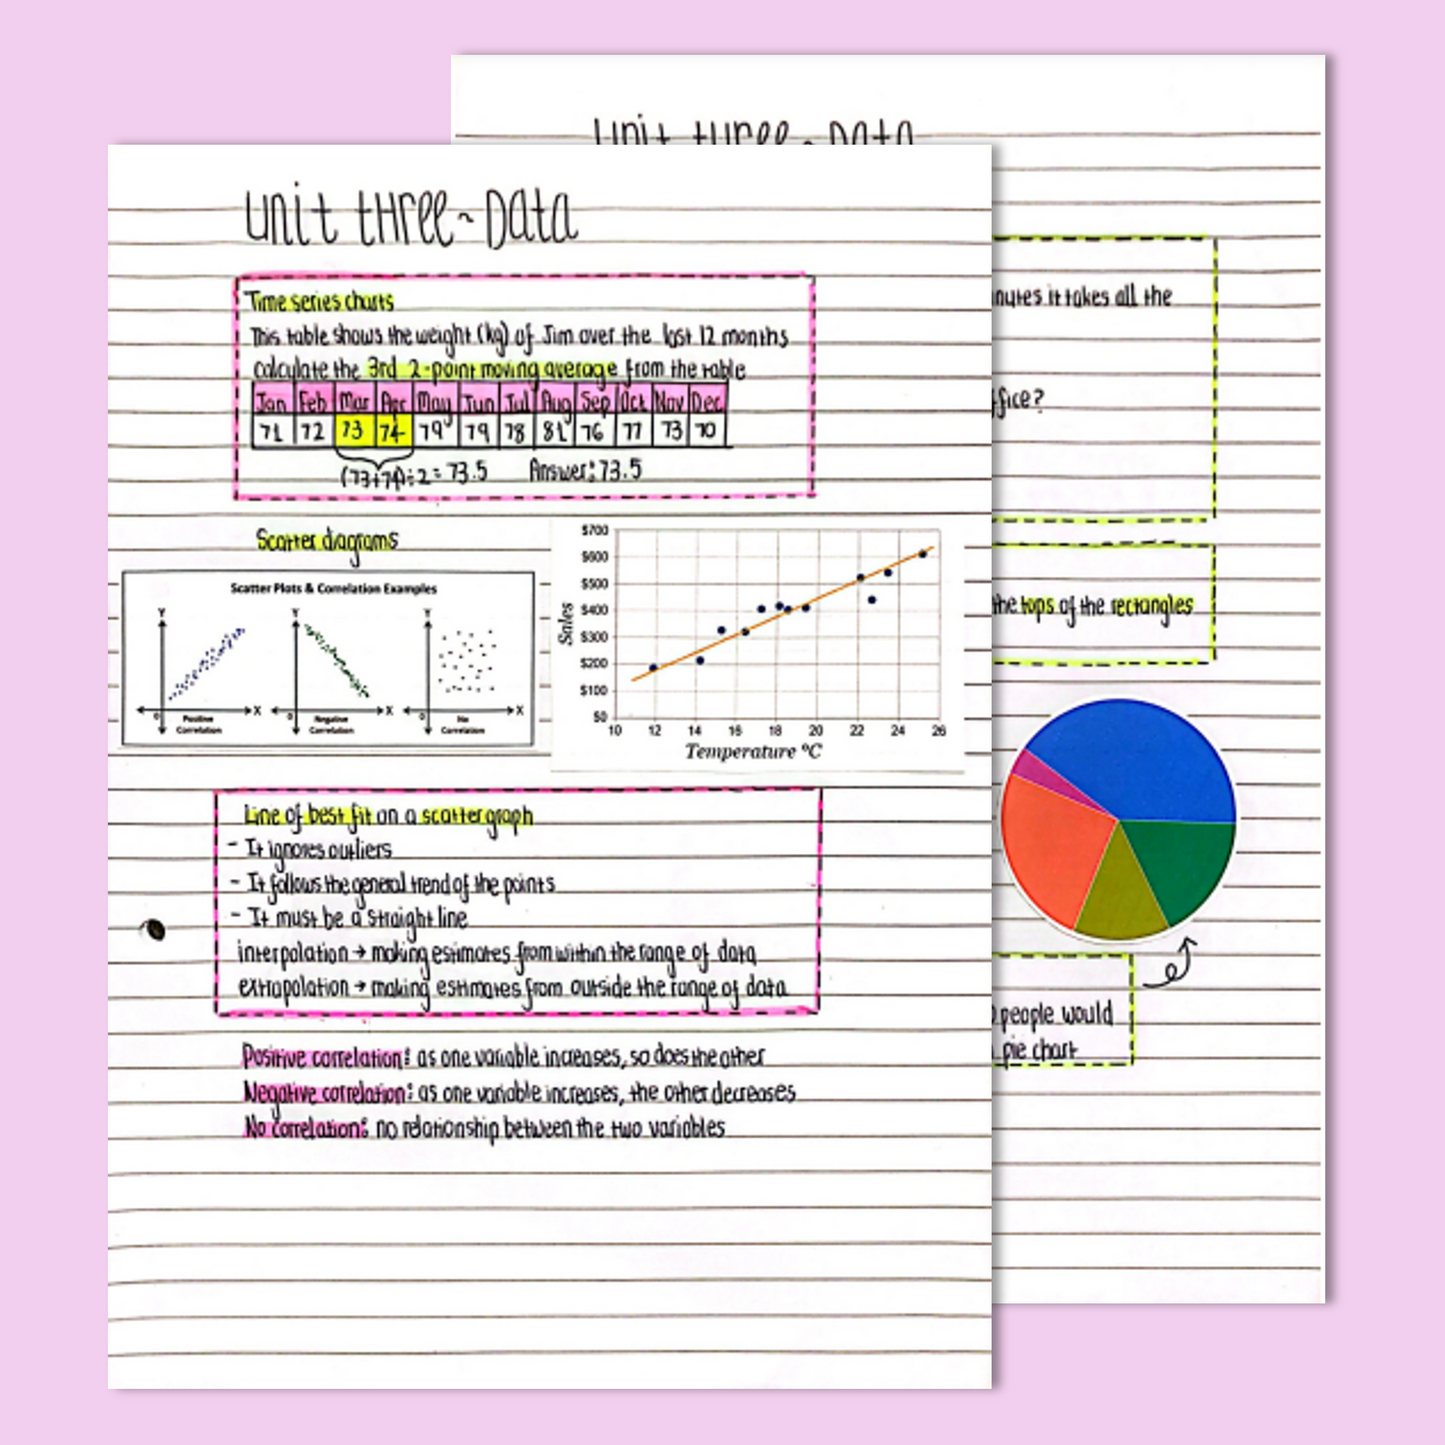 unit three ~ Data
Time series charts
This table shows the weight (kg) of Jim over the last 12 months
calculate the 3rd 2-point moving average from the table
Jan Feb Mar Apr May Jun Jul Aug Sep Oct Nov Dec
71 72 73 74 79 79 78 81 76 77 73 70
(73+74)÷2= 73.5 Answer: 73.5
Scatter diagrams
Scatter Plots & Correlation Examples
Y Y Y
0 X 0 X 0 X
Positive Correlation
Negative Correlation
No Correlation
$700
$600
$500
$400
$300
$200
$100
$0
Sales
10 12 14 16 18 20 22 24 26
Temperature °C
Line of best fit on a scatter graph
- It ignores outliers
- It follows the general trend of the points
- It must be a straight line
interpolation → making estimates from within the range of data
extrapolation → making estimates from outside the range of data
Positive correlation: as one variable increases, so does the other
Negative correlation: as one variable increases, the other decreases
No correlation: no relationship between the two variables
unit three ~ Data
nutes it takes all the
fice?
the tops of the rectangles
people would
pie chart